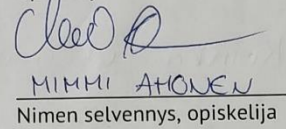 MIMMI AHONEN
Nimen selvennys, opiskelija